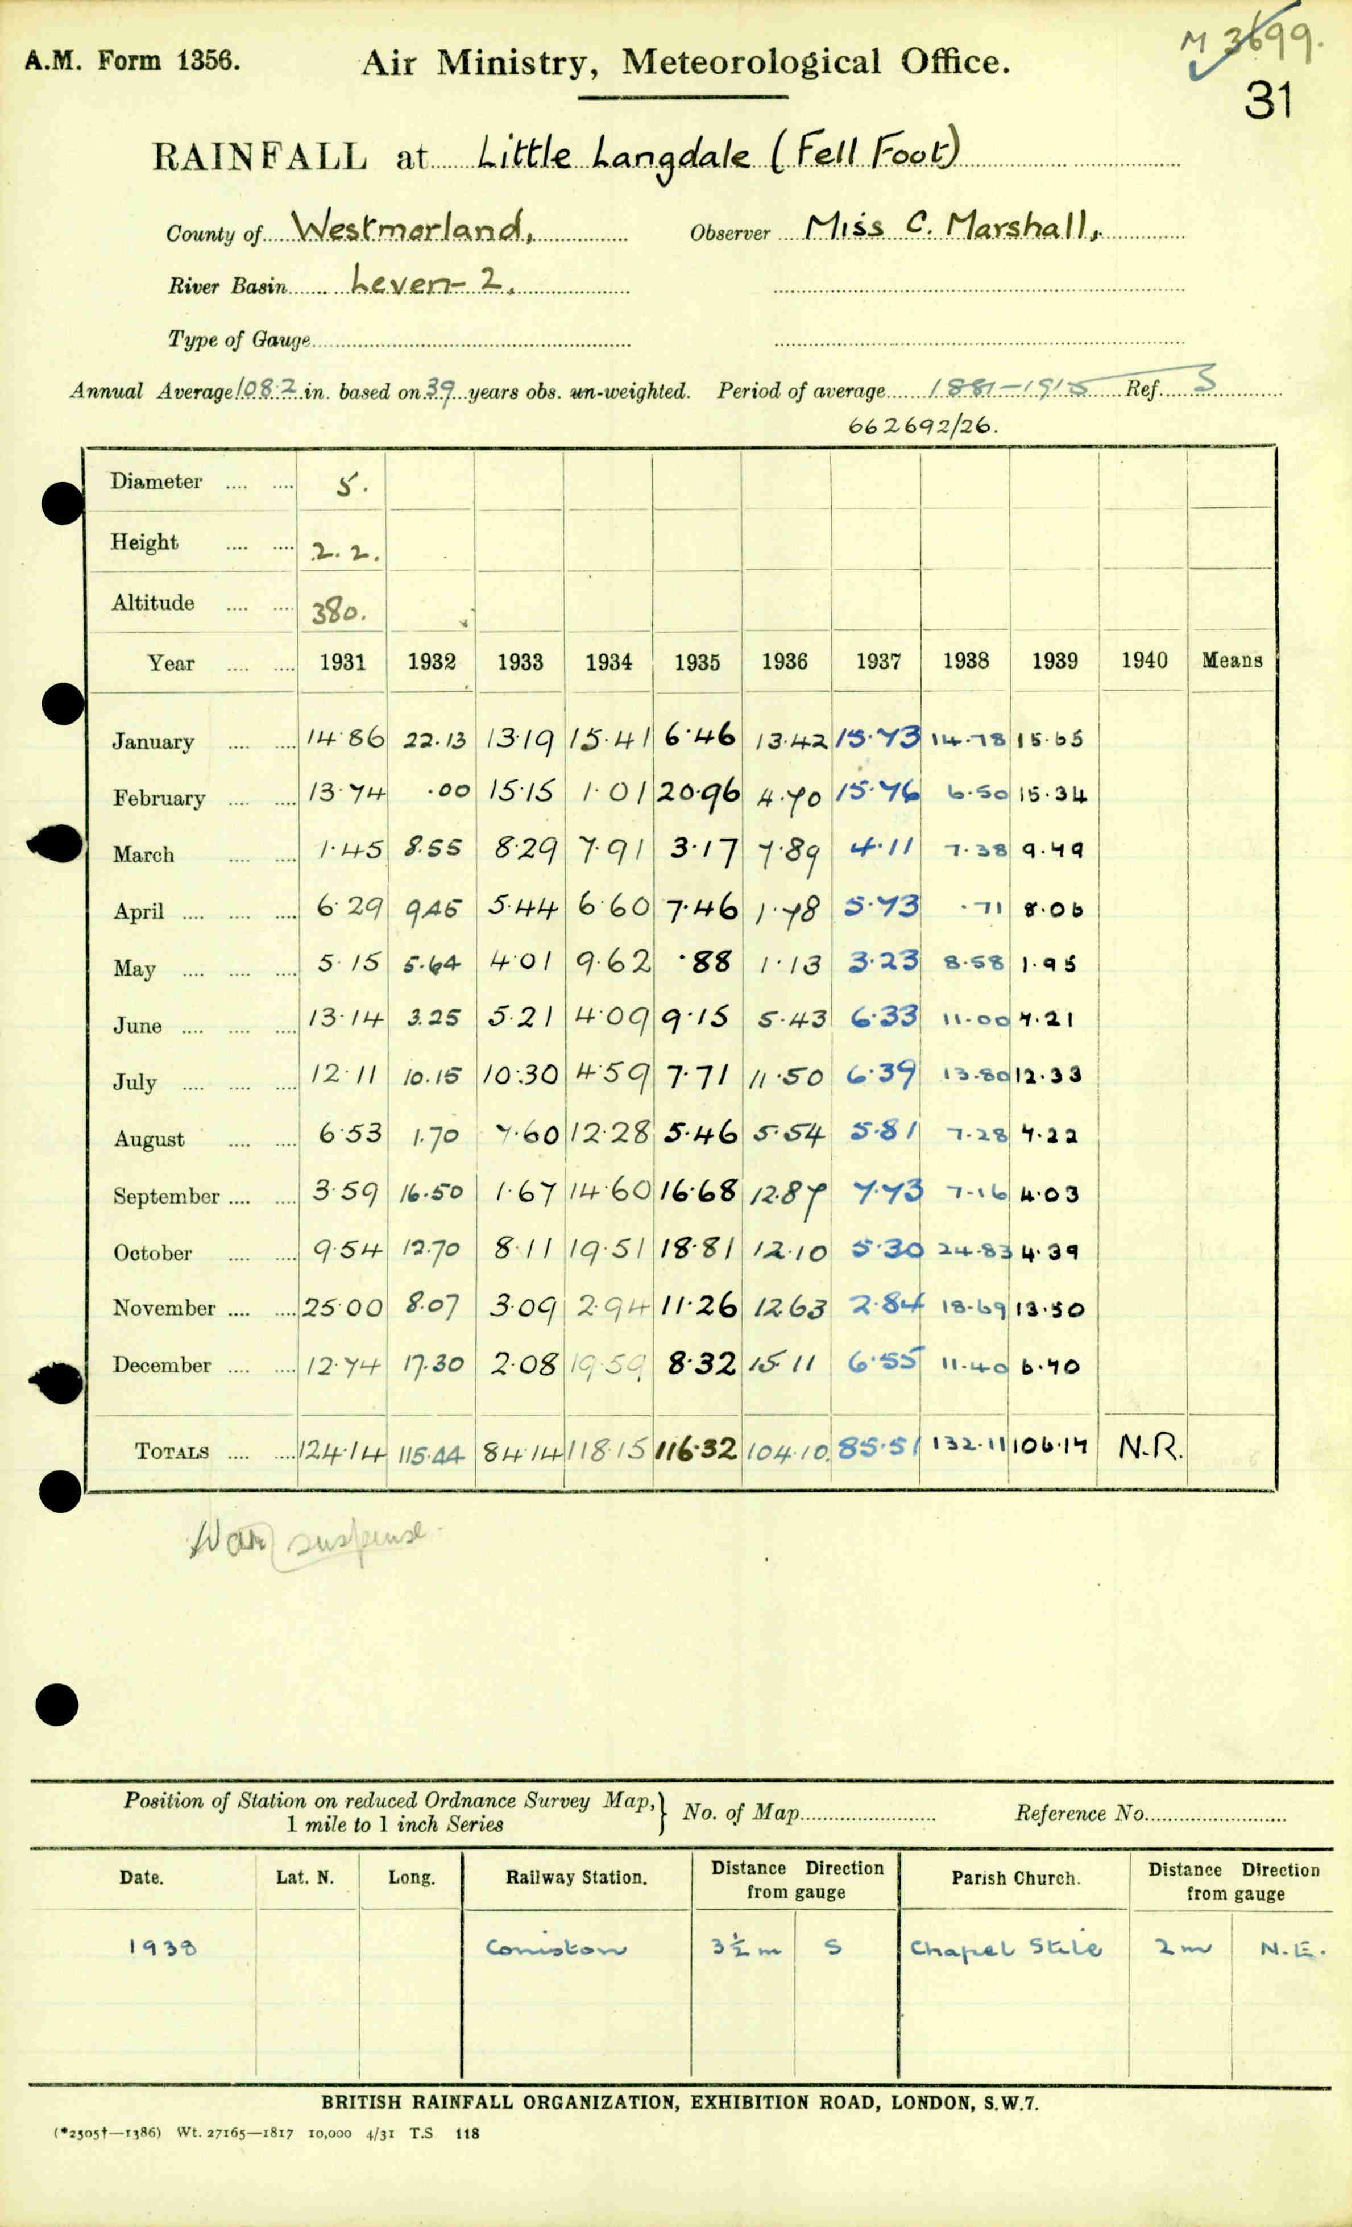 A.M. Form 1356.
Air Ministry, Meteorological Office.
M 3699.
31
RAINFALL at Little Langdale (Fell Foot)
County of Westmorland, Observer Miss C. Marshall,
River Basin Leven - 2.
Type of Gauge
Annual Average 108.2 in. based on 39 years obs. un-weighted. Period of average 1881-1915 Ref. S
662692/26.
Diameter 5.
Height 2.2.
Altitude 380.
Year 1931 1932 1933 1934 1935 1936 1937 1938 1939 1940 Means
January 14.86 22.13 13.19 15.41 6.46 13.42 15.73 14.78 15.65
February 13.74 .00 15.15 1.01 20.96 4.70 15.76 6.50 15.34
March 1.45 8.55 8.29 7.91 3.17 7.89 4.11 7.38 9.79
April 6.29 9.45 5.44 6.60 7.46 1.78 5.73 .71 8.06
May 5.15 5.64 4.01 9.62 .88 1.13 3.23 8.58 1.95
June 13.14 3.25 5.21 4.09 9.15 5.43 6.33 11.00 7.21
July 12.11 10.15 10.30 4.59 7.71 11.50 6.39 13.80 12.33
August 6.53 1.70 7.60 12.28 5.46 5.54 5.81 7.28 7.22
September 3.59 16.50 1.67 14.60 16.68 12.87 7.73 7.16 4.03
October 9.54 12.70 8.11 19.51 18.81 12.10 5.30 24.83 4.39
November 25.00 8.07 3.09 2.94 11.26 12.63 2.84 18.69 13.50
December 12.74 17.30 2.08 19.59 8.32 15.11 6.55 11.40 6.70
TOTALS 124.14 115.44 84.14 118.15 116.32 104.10 85.51 132.11 106.17 N.R.
War suspense
Position of Station on reduced Ordnance Survey Map, 1 mile to 1 inch Series } No. of Map Reference No.
Date. Lat. N. Long. Railway Station. Distance Direction from gauge Parish Church. Distance Direction from gauge
1938 Coniston 3½ m S Chapel Stile 2 m N.E.
BRITISH RAINFALL ORGANIZATION, EXHIBITION ROAD, LONDON, S.W.7.
(*2505†—1386) Wt. 27165—1817 10,000 4/31 T.S 118